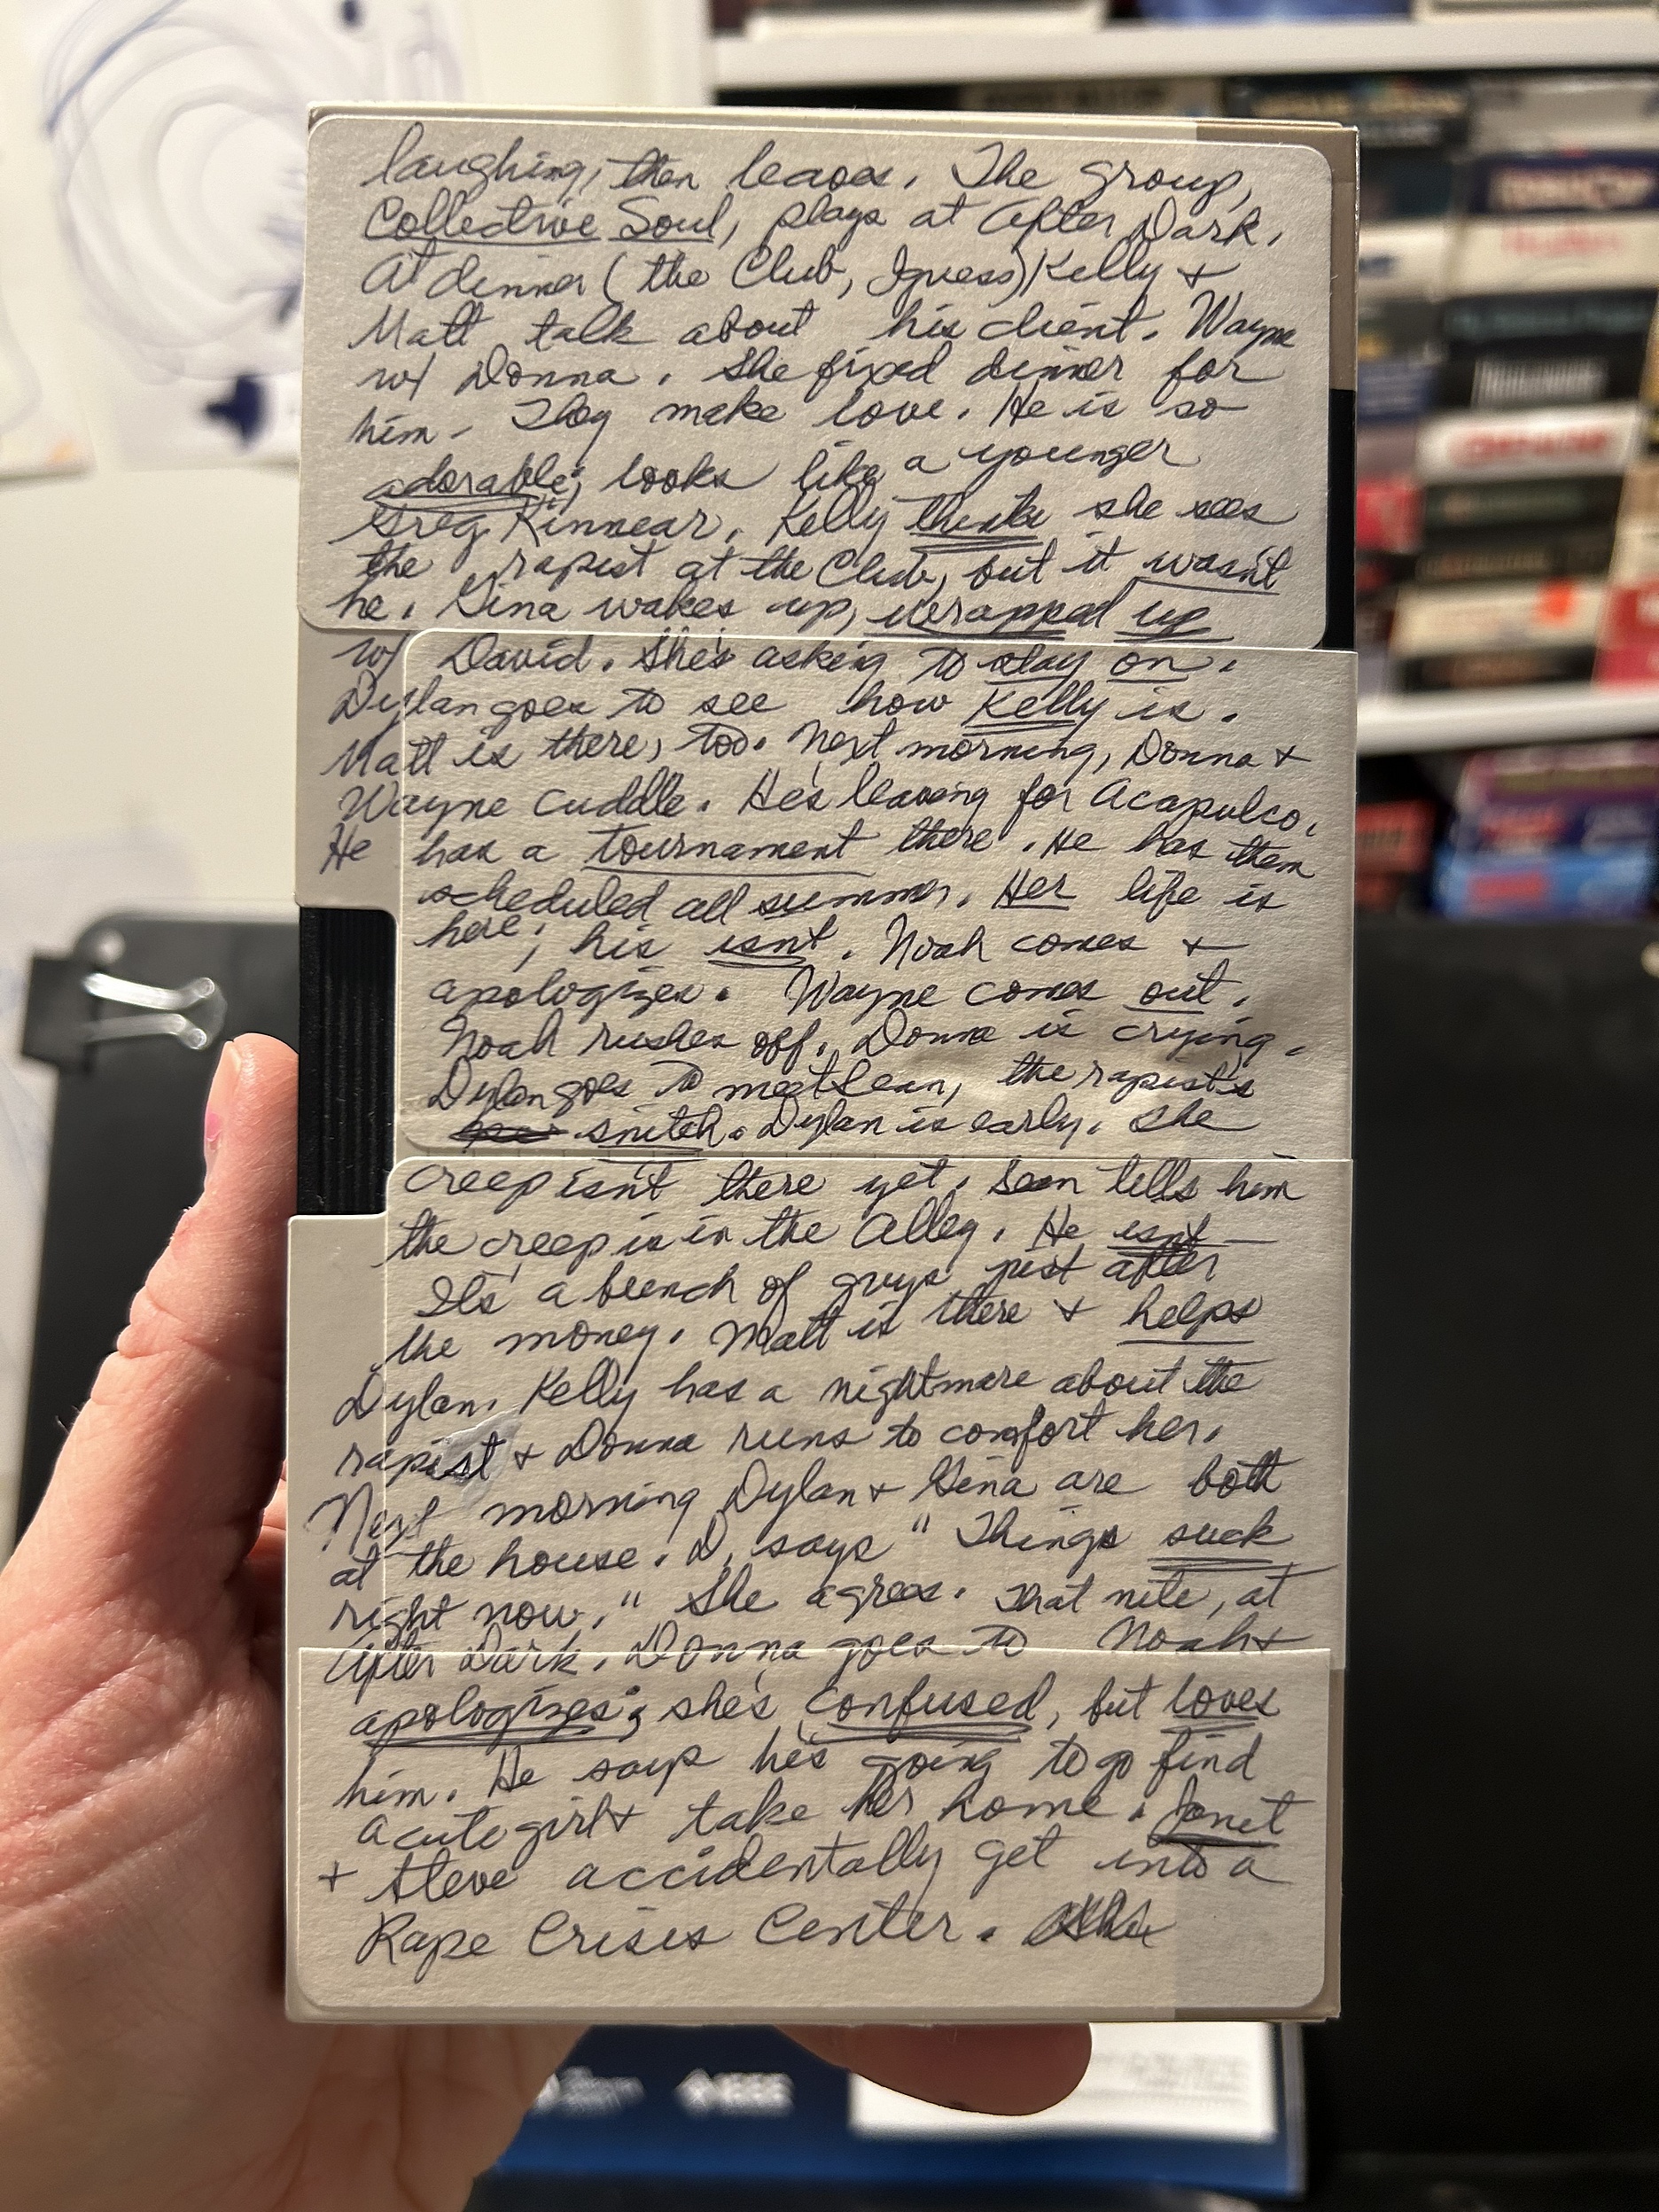 laughing, then leaves. The group,
Collective Soul, plays at After Dark.
At dinner (the Club, I guess) Kelly +
Matt talk about his client. Wayne
w/ Donna. She fixed dinner for
him - They make love. He is so
adorable; looks like a younger
Greg Kinnear. Kelly thinks she sees
the rapist at the Club, but it wasn't
he. Gina wakes up, wrapped up
w/ David. She's asking to stay on.
Dylan goes to see how Kelly is.
Matt is there, too. Next morning, Donna +
Wayne cuddle. He's leaving for Acapulco.
He has a tournament there. He has them
scheduled all summer. Her life is
here; his isn't. Noah comes +
apologizes. Wayne comes out.
Noah rushes off. Donna is crying.
Dylan goes to meet Sean, the rapist's
snitch. Dylan is early. She
creep isn't there yet. Sean tells him
the creep is in the Alley. He isn't -
It's a bunch of guys just after
the money. Matt is there + helps
Dylan. Kelly has a nightmare about the
rapist + Donna runs to comfort her.
Next morning Dylan + Gina are both
at the house. D. says "Things suck
right now." She agrees. That nite, at
After Dark. Donna goes to Noah +
apologizes; she's confused, but loves
him. He says he's going to go find
a cute girl + take her home. Janet
+ Steve accidentally get into a
Rape Crisis Center.